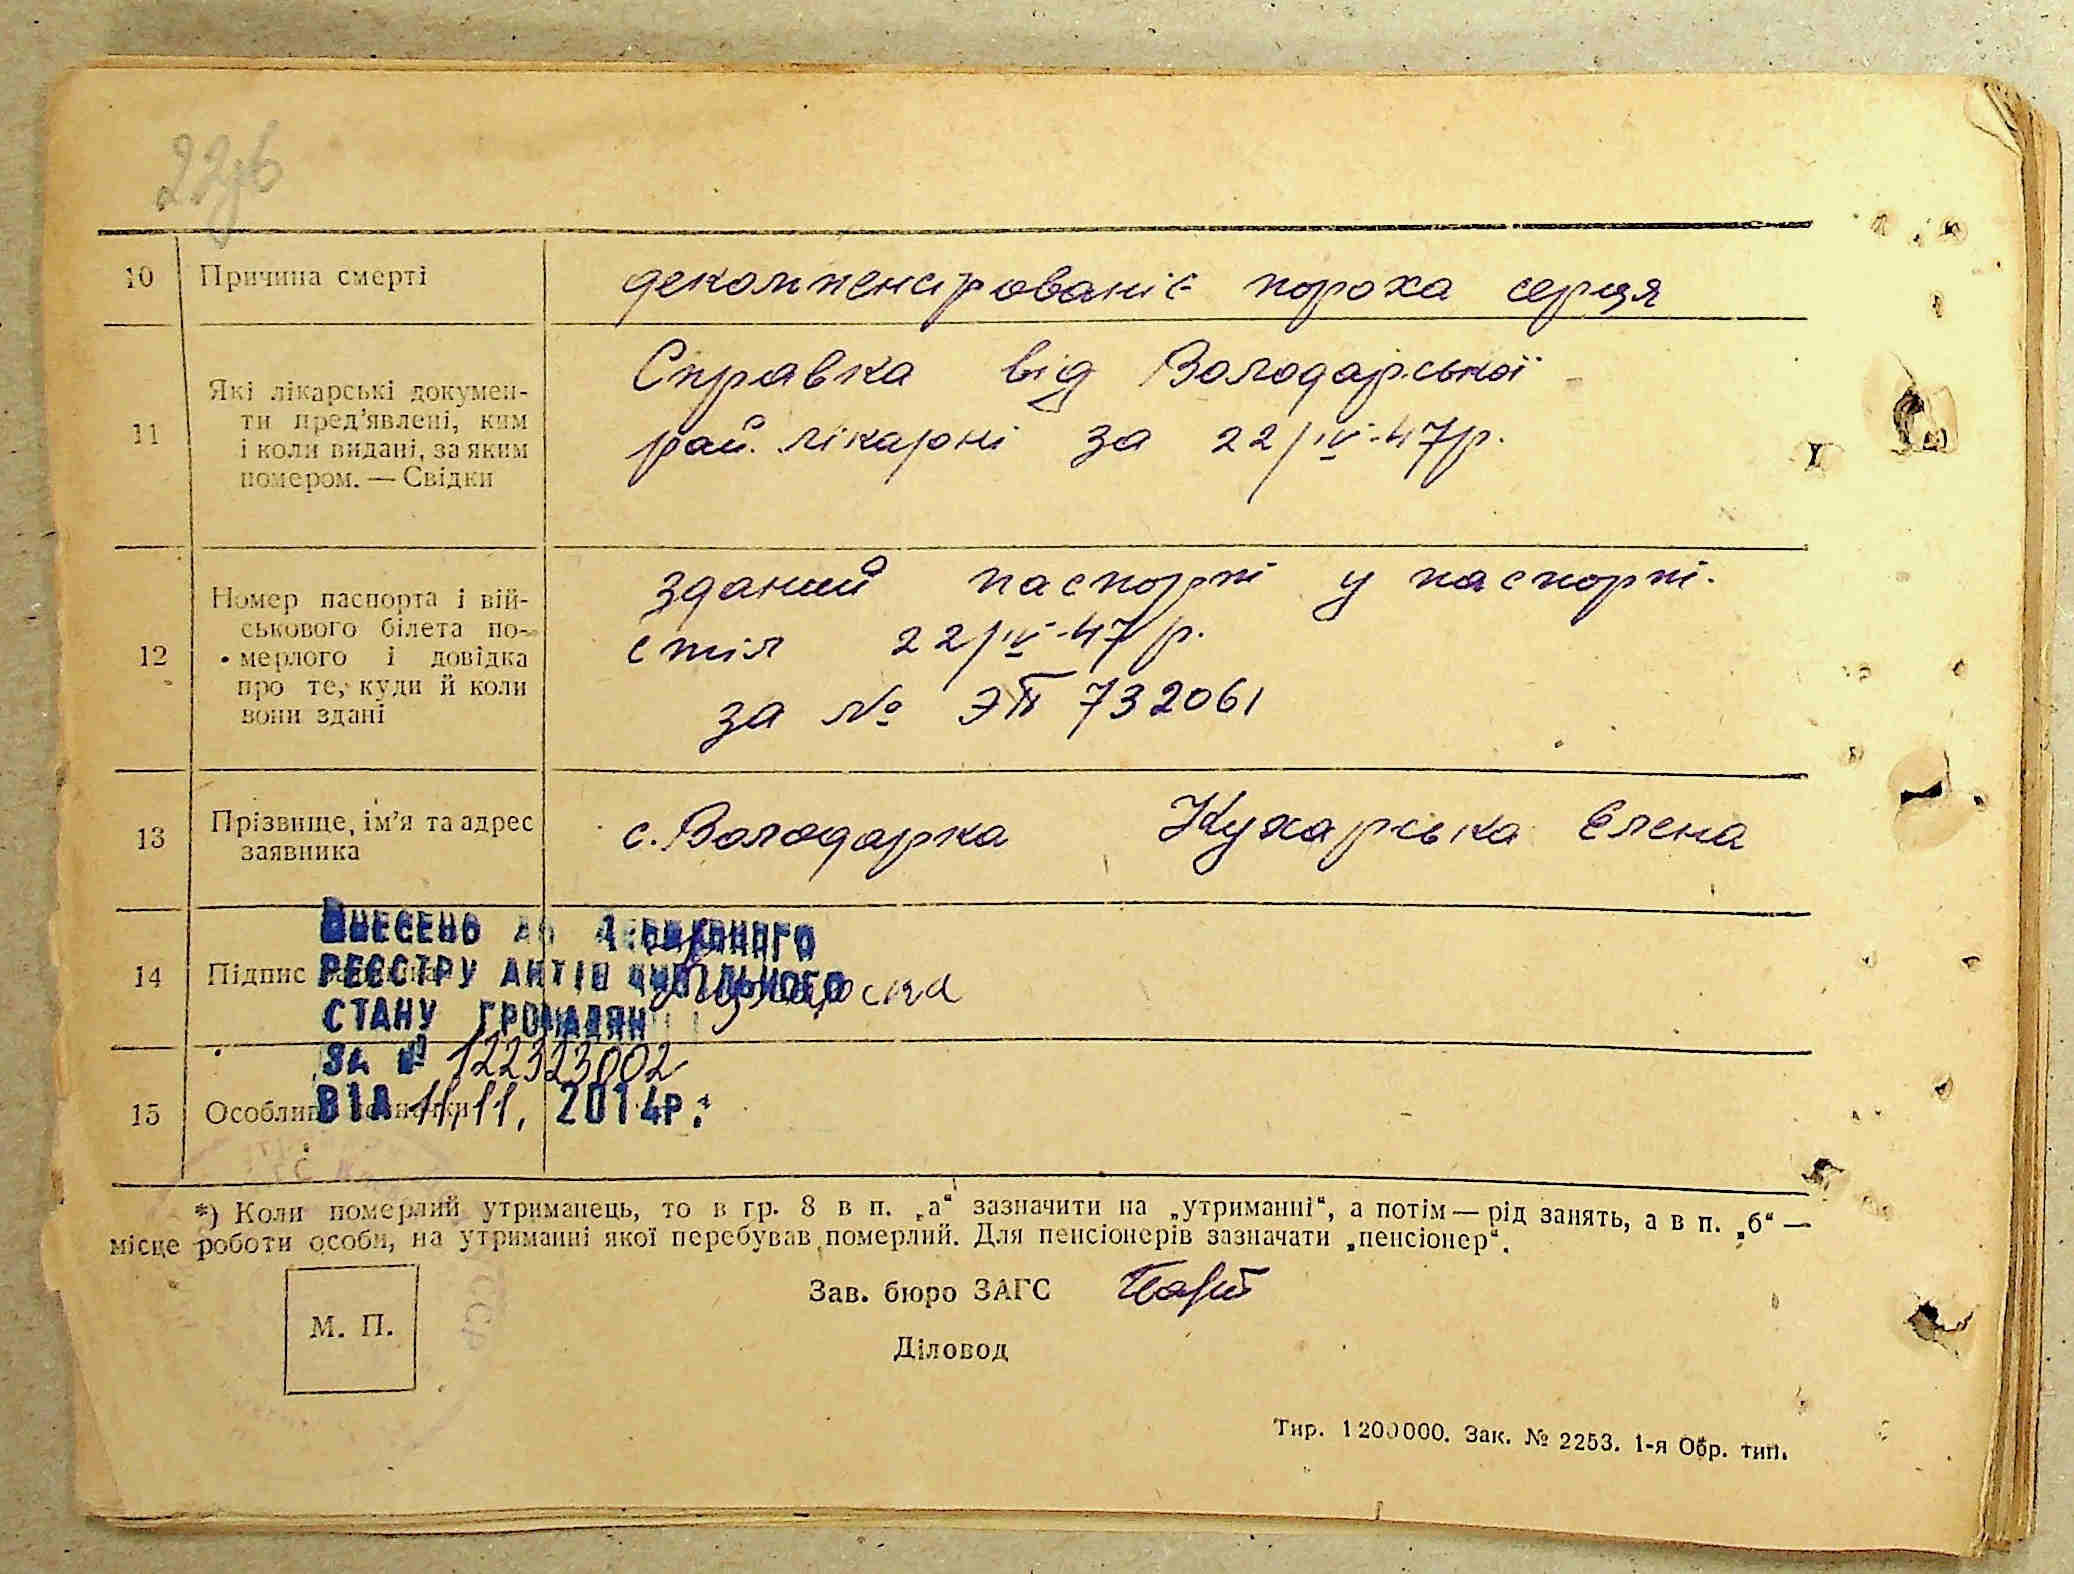 10 Причина смерті декомпенсірованіє пороха серця
11 Які лікарські докумен-
ти пред'явлені, ким
і коли видані, за яким
номером. — Свідки
Справка від Володарської
рай. лікарні за 22/IV-47р.
12 Номер паспорта і вій-
ськового білета по-
мерлого і довідка
про те, куди й коли
вони здані
зданий паспорт у паспорт.
стіл 22/IV-47р.
за № ЭП 732061
13 Прізвище, ім'я та адрес
заявника
с. Володарка Кухарська Єлена
14 Підпис
ВНЕСЕНО ДО ДЕРЖАВНОГО
РЕЄСТРУ АКТІВ ЦИВІЛЬНОГО
СТАНУ ГРОМАДЯН
ЗА № 122323002
ВІД 11.11. 2014р.
15 Особливі
*) Коли померлий утриманець, то в гр. 8 в п. „а“ зазначити на „утриманні“, а потім — рід занять, а в п. „б“ —
місце роботи особи, на утриманні якої перебував померлий. Для пенсіонерів зазначати „пенсіонер“.
Зав. бюро ЗАГС
М. П.
Діловод
Тир. 1200000. Зак. № 2253. 1-я Обр. тип.